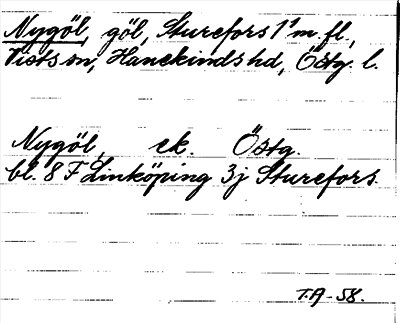 Nygöl, göl, Sturefors 1¹ m. fl.,
Vists sn, Hanekinds hd, Östg. l.
Nygöl, ek. Östg.
bl. 8 F Linköping 3j Sturefors.
T.A-58.